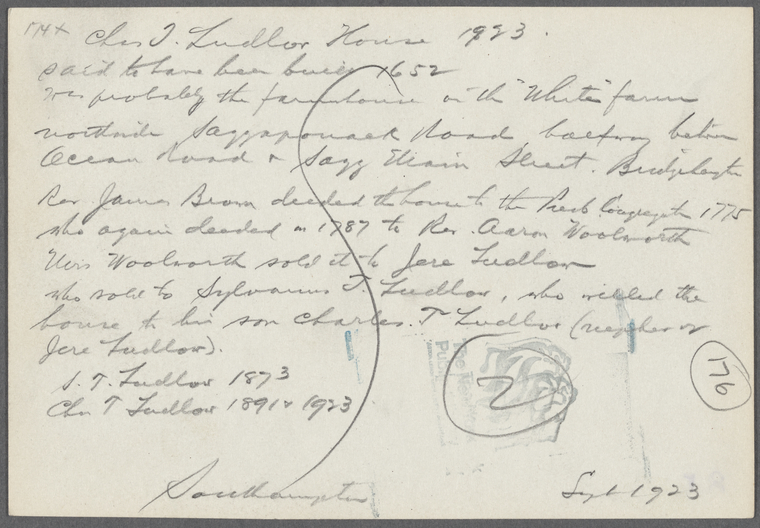 Chas T. Ludlow House 1923.
said to have been built 1652
was probably the farmhouse on the "White" farm
northside Saggaponack Road, halfway between
Ocean Road & Sagg Main Street. Bridgehampton
Rev James Brown deeded the house to the Presb. Congregation 1775
who again deeded in 1787 to Rev. Aaron Woolworth
Woolworth sold it to Jere Ludlow
who sold to Sylvanus T. Ludlow, who willed the
house to his son Charles. T Ludlow (nephew of
Jere Ludlow).
S. T. Ludlow 1873
Chas T Ludlow 1891 & 1923
2
176
Southampton
Sept 1923